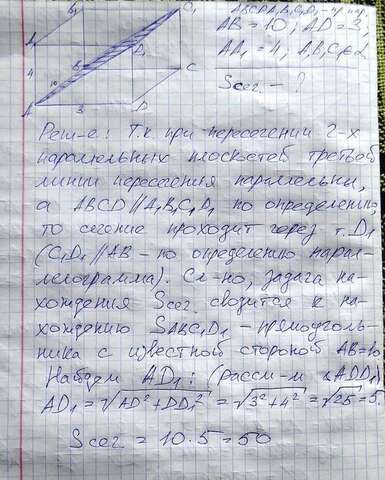 B₁ C₁
ABCDA₁B₁C₁D₁ - пр. пар.
AB = 10, AD = 3,
A₁ D₁
AA₁ = 4; A, B, C₁ ∈ α
4 B C
10
Sсег - ?
A 3 D
Реш-е: Т.к при пересечении 2-х
параллельных плоскостей третьей
линии пересечения параллельны,
а ABCD || A₁B₁C₁D₁ по определению,
то сечение проходит через т. D₁
(C₁D₁ || AB - по определению парал-
лелограмма). Сл-но, задача на-
хождения Sсег. сводится к на-
хождению SABC₁D₁ - прямоуголь-
ника с известной стороной AB=10
Найдём AD₁: (рассм-м △ADD₁)
AD₁ = √AD² + DD₁² = √3² + 4² = √25 = 5.
Sсег = 10 · 5 = 50